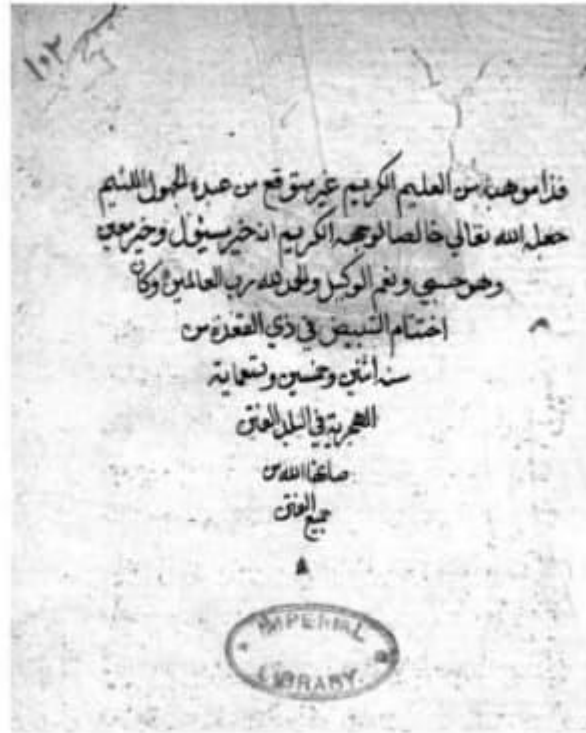 ١٠٢
فذا موهبة من العليم الكريم غير متوقع من عبده الجهول اللئيم
جعله الله تعالي خالصا لوجهه الكريم انه خير مسئول وخير معين
وهو حسبي ونعم الوكيل والحمد لله رب العالمين وكان
اختتام التبييض في ذي القعدة من
سنة اثنين وخمسين وتسعماية
الهجرية في البلد
صانها الله من
جميع الفتن
IMPERIAL
LIBRARY.